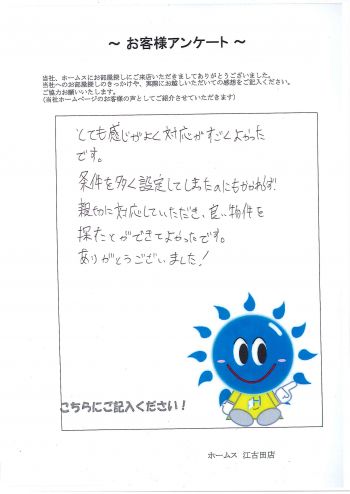 ～ お客様アンケート ～
当社、ホームスにお部屋探しにご来店いただきましてありがとうございました。
当社へのお部屋探しのきっかけや、実際にお越しいただいての感想をご記入ください。
ご協力お願いいたします。
(当社ホームページのお客様の声としてご紹介させていただきます)
とても感じがよく対応がすごくよかった
です。
条件を多く設定してしまったのにもかかわらず!
親切に対応していただき、良い物件を
探たことができてよかったです。
ありがとうございました!
H
こちらにご記入ください!
ホームス 江古田店